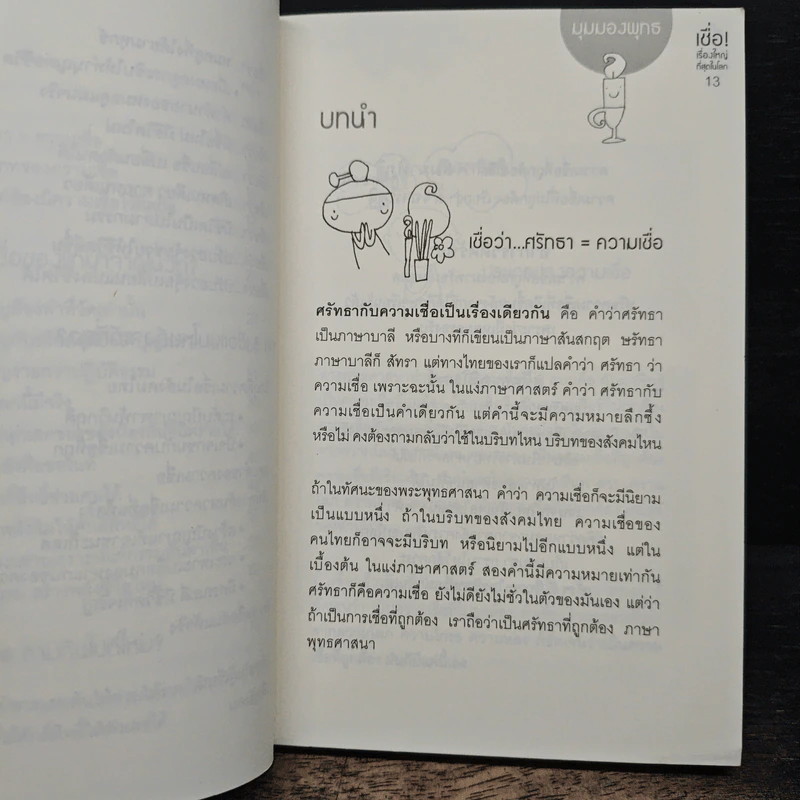 มุมมองพุทธ
เชื่อ!
เรื่องใหญ่
ที่สุดในโลก
13
บทนำ
เชื่อว่า...ศรัทธา = ความเชื่อ
ศรัทธากับความเชื่อเป็นเรื่องเดียวกัน คือ คำว่าศรัทธา
เป็นภาษาบาลี หรือบางทีก็เขียนเป็นภาษาสันสกฤต ษรัทธา
ภาษาบาลีก็ สัทรา แต่ทางไทยของเราก็แปลคำว่า ศรัทธา ว่า
ความเชื่อ เพราะฉะนั้น ในแง่ภาษาศาสตร์ คำว่า ศรัทธากับ
ความเชื่อเป็นคำเดียวกัน แต่คำนี้จะมีความหมายลึกซึ้ง
หรือไม่ คงต้องถามกลับว่าใช้ในบริบทไหน บริบทของสังคมไหน
ถ้าในทัศนะของพระพุทธศาสนา คำว่า ความเชื่อก็จะมีนิยาม
เป็นแบบหนึ่ง ถ้าในบริบทของสังคมไทย ความเชื่อของ
คนไทยก็อาจจะมีบริบท หรือนิยามไปอีกแบบหนึ่ง แต่ใน
เบื้องต้น ในแง่ภาษาศาสตร์ สองคำนี้มีความหมายเท่ากัน
ศรัทธาก็คือความเชื่อ ยังไม่ดียังไม่ชั่วในตัวของมันเอง แต่ว่า
ถ้าเป็นการเชื่อที่ถูกต้อง เราถือว่าเป็นศรัทธาที่ถูกต้อง ภาษา
พุทธศาสนา